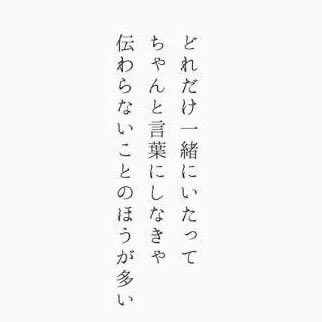 どれだけ一緒にいたって
ちゃんと言葉にしなきゃ
伝わらないことのほうが多い